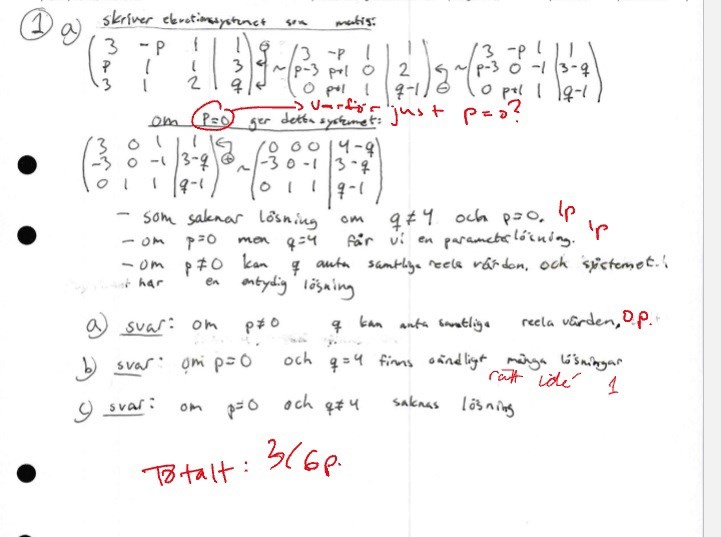 1 a) skriver ekvationssystemet som matris:
( 3 -p 1 | 1 ) ( 3 -p 1 | 1 ) ( 3 -p 1 | 1 )
( p 1 1 | 3 ) ⊖ ~ ( p-3 p+1 0 | 2 ) ~ ( p-3 0 -1 | 3-q )
( 3 1 2 | q ) ( 0 p+1 1 | q-1 ) ⊖ ( 0 p+1 1 | q-1 )
om P=0 ger detta systemet: → Varför just p=0?
( 3 0 1 | 1 ) ( 0 0 0 | 4-q )
( -3 0 -1 | 3-q ) ⊕ ~ ( -3 0 -1 | 3-q )
( 0 1 1 | q-1 ) ( 0 1 1 | q-1 )
- som saknar lösning om q≠4 och p=0. 1p
- om p=0 men q=4 får vi en parameterlösning. 1p
- om p≠0 kan q anta samtliga reela värden, och systemet
har en entydig lösning
a) svar: om p≠0 q kan anta samtliga reela värden, 0.p.
b) svar: om p=0 och q=4 finns oändligt många lösningar
rätt idé 1
c) svar: om p=0 och q≠4 saknas lösning
Totalt: 3/6p.